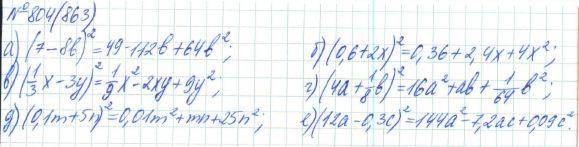 № 804(863)
а) (7-8b)² = 49-112b+64b²; б) (0,6+2x)² = 0,36+2,4x+4x²;
в) (1/3 x-3y)² = 1/9 x²-2xy+9y²; г) (4a+1/8 b)² = 16a²+ab+1/64 b²;
д) (0,1m+5n)² = 0,01m²+mn+25n²; е) (12a-0,3c)² = 144a²-7,2ac+0,09c².